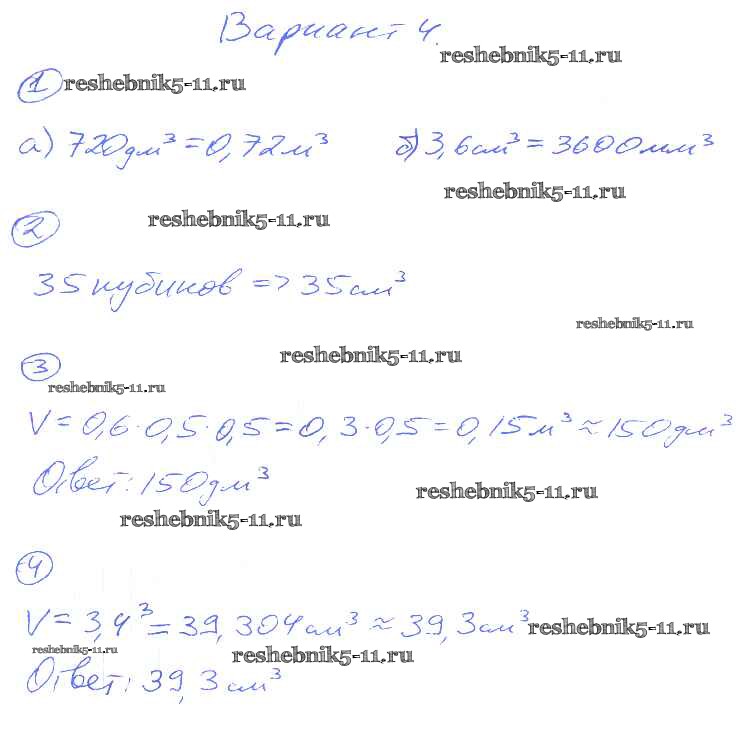 Вариант 4.
reshebnik5-11.ru
1 reshebnik5-11.ru
а) 720дм³=0,72м³ б) 3,6см³=3600мм³
reshebnik5-11.ru
2 reshebnik5-11.ru
35 кубиков => 35см³
reshebnik5-11.ru
3 reshebnik5-11.ru
reshebnik5-11.ru
V=0,6·0,5·0,5=0,3·0,5=0,15м³≈150дм³
Ответ: 150дм³
reshebnik5-11.ru
reshebnik5-11.ru
4
V=3,4³=39,304см³≈39,3см³ reshebnik5-11.ru
reshebnik5-11.ru reshebnik5-11.ru
Ответ: 39,3см³